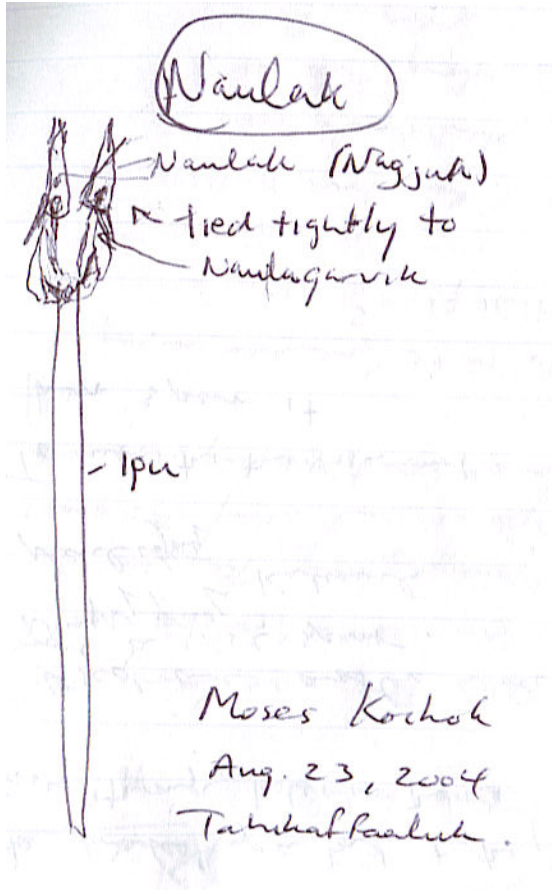 Naulak
Naulak (Nagjuk)
tied tightly to
Naulaqarvik
Ipu
Moses Kochok
Aug. 23, 2004